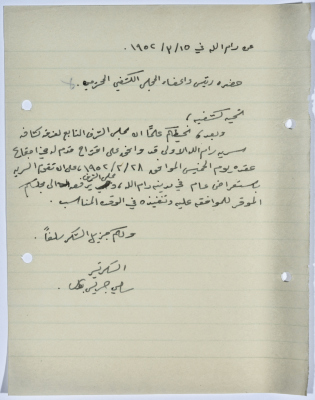 من رام الله في ١٥/٣/١٩٥٢.
حضرة رئيس واعضاء المجلس الكشفي المحترمين.
تحية كشفية،
وبعد، نحيطكم علمًا ان مجلس الشرف التابع لفرقة كشافة
سرية رام الله الاولى قد وافق على اقتراح قدم له في اجتماع
عقده يوم الخميس الموافق ٢٨/٢/١٩٥٢، على ان تقوم السرية
باستعراض عام في مدينة رام الله، مجلس الشرف يرفعه الى مجلسكم
الموقر للموافقة عليه وتنفيذه في الوقت المناسب.
ولكم جزيل الشكر سلفاً.
السكرتير
جريس